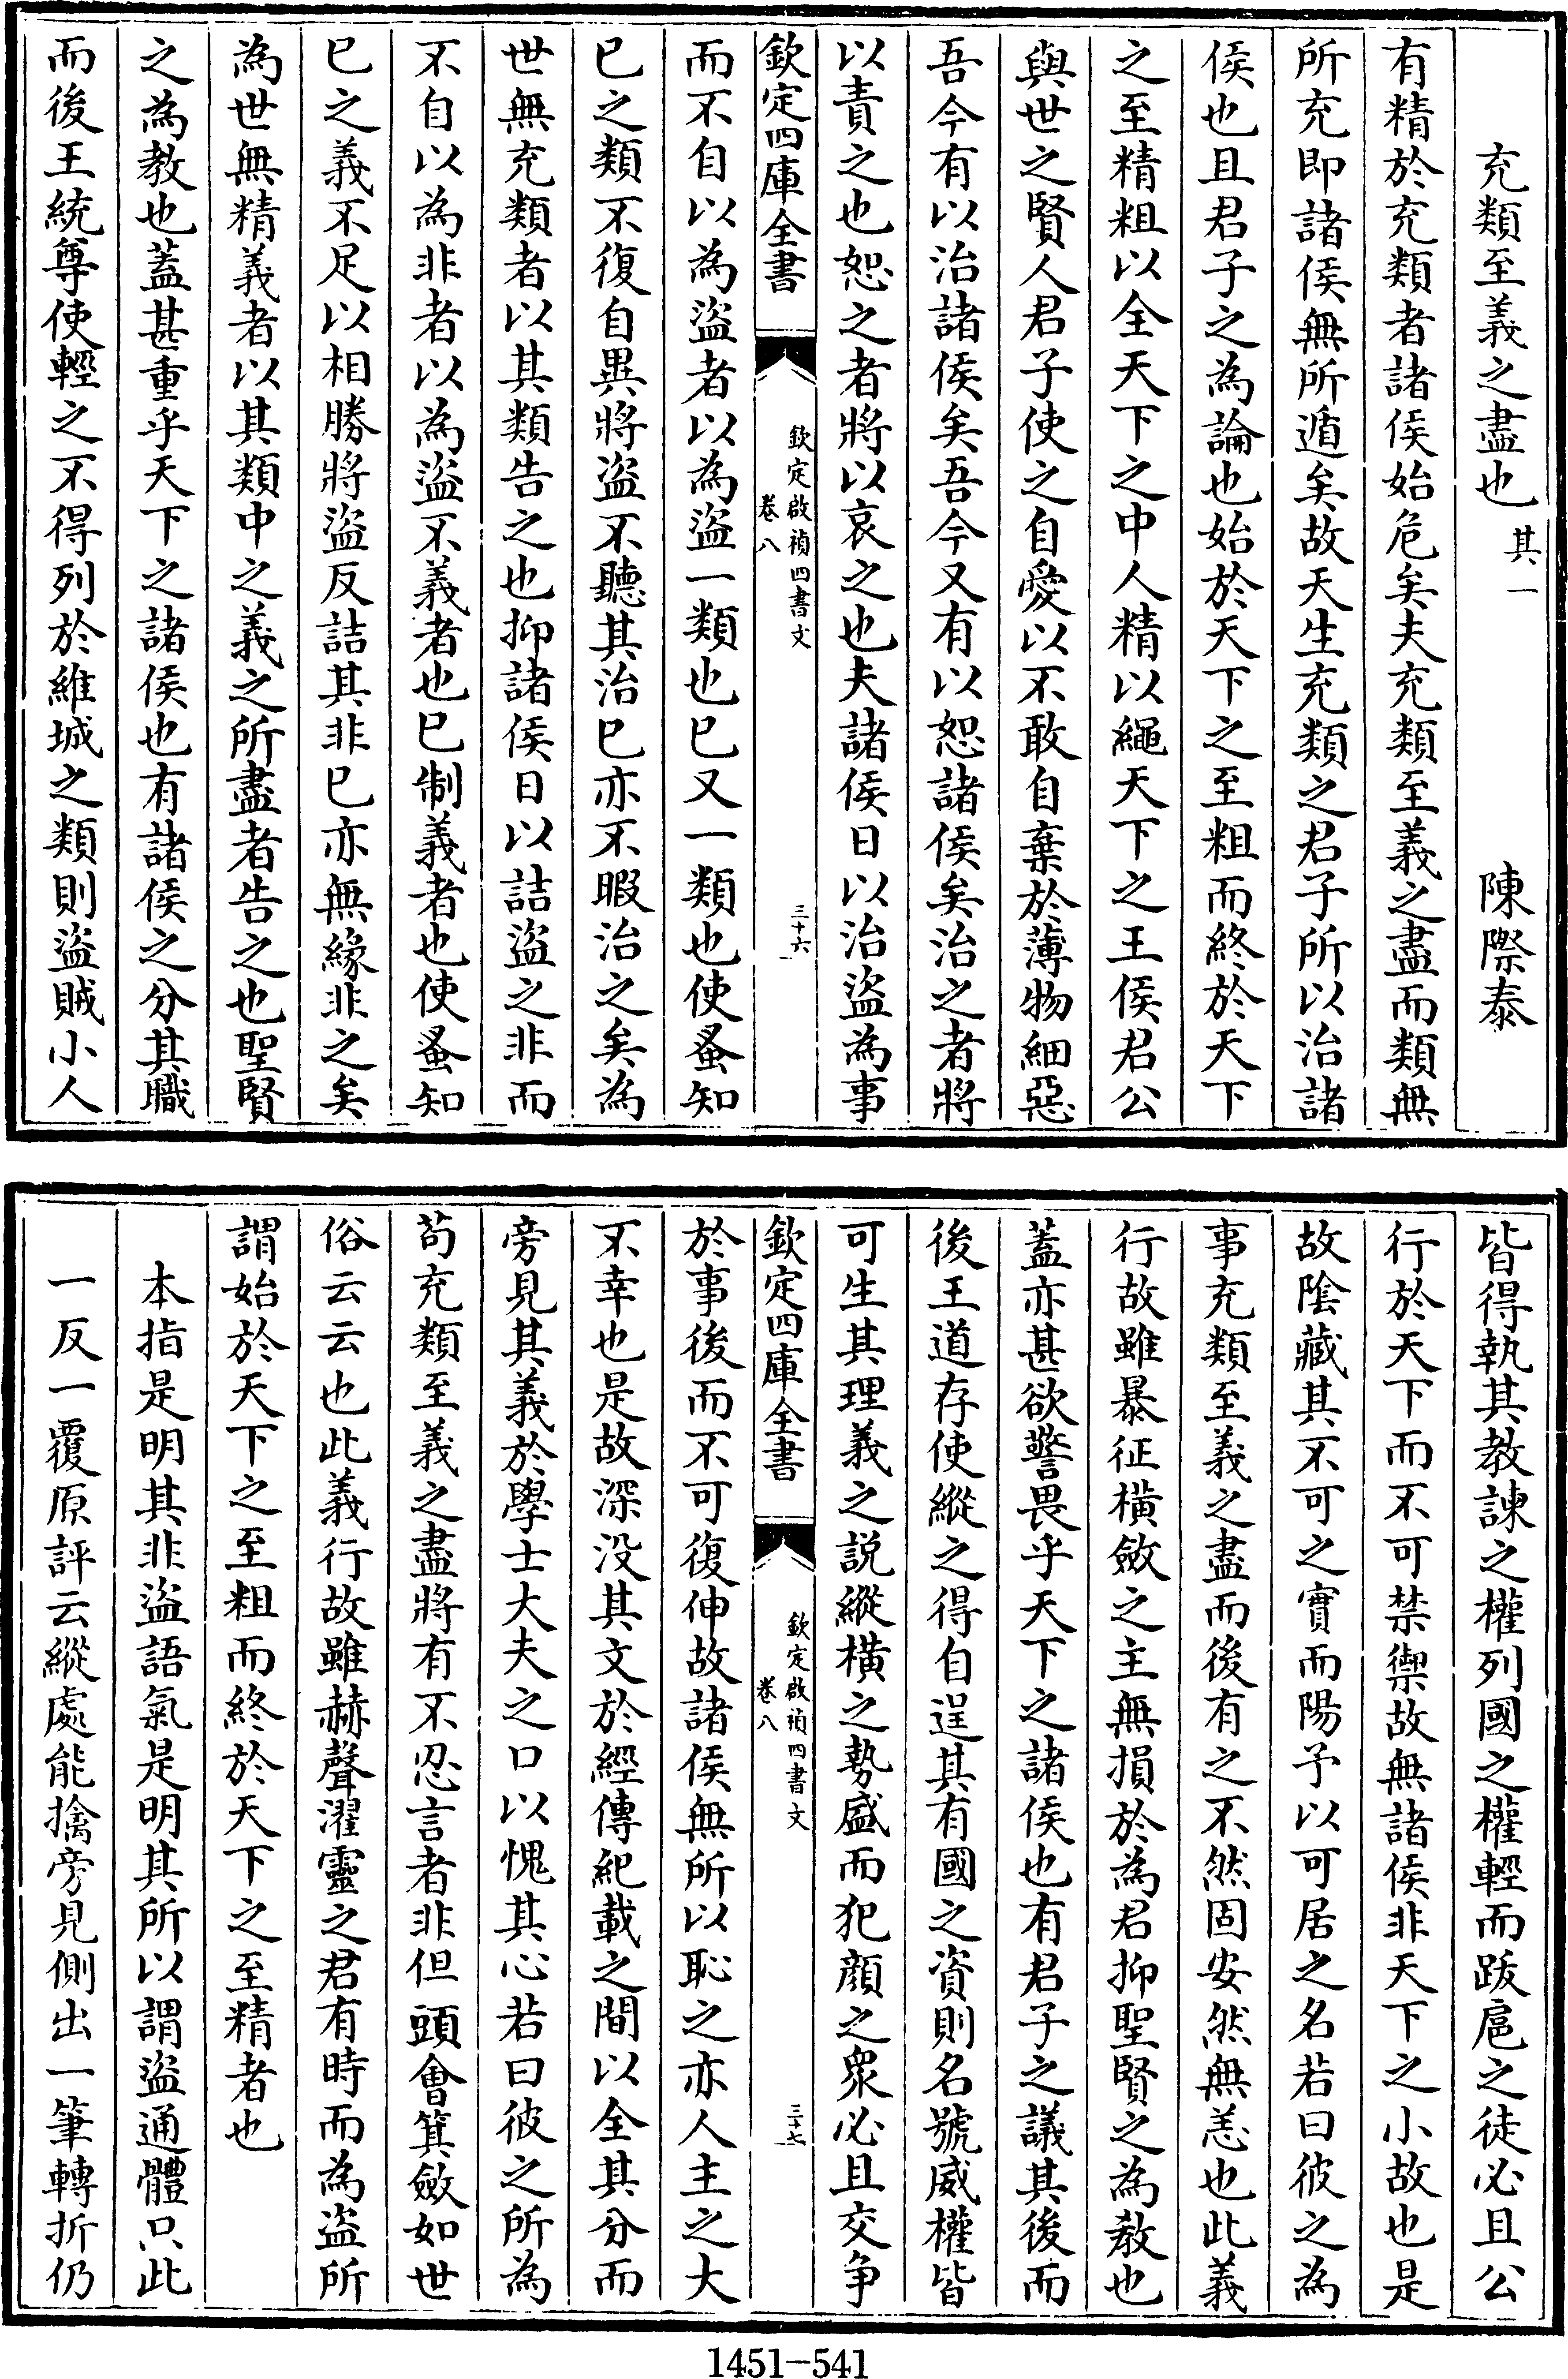 充類至義之盡也其一 陳際泰
有精於充類者諸侯始危矣夫充類至義之盡而類無
所充即諸侯無所遁矣故天生充類之君子所以治諸
侯也且君子之為論也始於天下之至粗而終於天下
之至精粗以全天下之中人精以繩天下之王侯君公
與世之賢人君子使之自愛以不敢自棄於薄物細惡
吾今有以治諸侯矣吾今又有以恕諸侯矣治之者將
以責之也恕之者將以哀之也夫諸侯日以治盜為事
欽定四庫全書
欽定啟禎四書文
卷八
三十六
而不自以為盜者以為盜一類也已又一類也使蚤知
已之類不復自異將盜不聽其治已亦不暇治之矣為
世無充類者以其類告之也抑諸侯日以詰盜之非而
不自以為非者以為盜不義者也已制義者也使蚤知
已之義不足以相勝將盜反詰其非已亦無緣非之矣
為世無精義者以其類中之義之所盡者告之也聖賢
之為教也蓋甚重乎天下之諸侯也有諸侯之分其職
而後王統尊使輕之不得列於維城之類則盜賊小人
皆得執其教諫之權列國之權輕而跋扈之徒必且公
行於天下而不可禁禦故無諸侯非天下之小故也是
故陰藏其不可之實而陽予以可居之名若曰彼之為
事充類至義之盡而後有之不然固安然無恙也此義
行故雖暴征橫斂之主無損於為君抑聖賢之為教也
蓋亦甚欲警畏乎天下之諸侯也有君子之議其後而
後王道存使縱之得自逞其有國之資則名號威權皆
可生其理義之說縱橫之勢盛而犯顏之衆必且交爭
欽定四庫全書
欽定啟禎四書文
卷八
三十七
於事後而不可復伸故諸侯無所以恥之亦人主之大
不幸也是故深没其文於經傳紀載之間以全其分而
旁見其義於學士大夫之口以愧其心若曰彼之所為
苟充類至義之盡將有不忍言者非但頭會箕斂如世
俗云云也此義行故雖赫聲濯靈之君有時而為盜所
謂始於天下之至粗而終於天下之至精者也
本指是明其非盜語氣是明其所以謂盜通體只此
一反一覆原評云縱處能擒旁見側出一筆轉折仍
1451-541